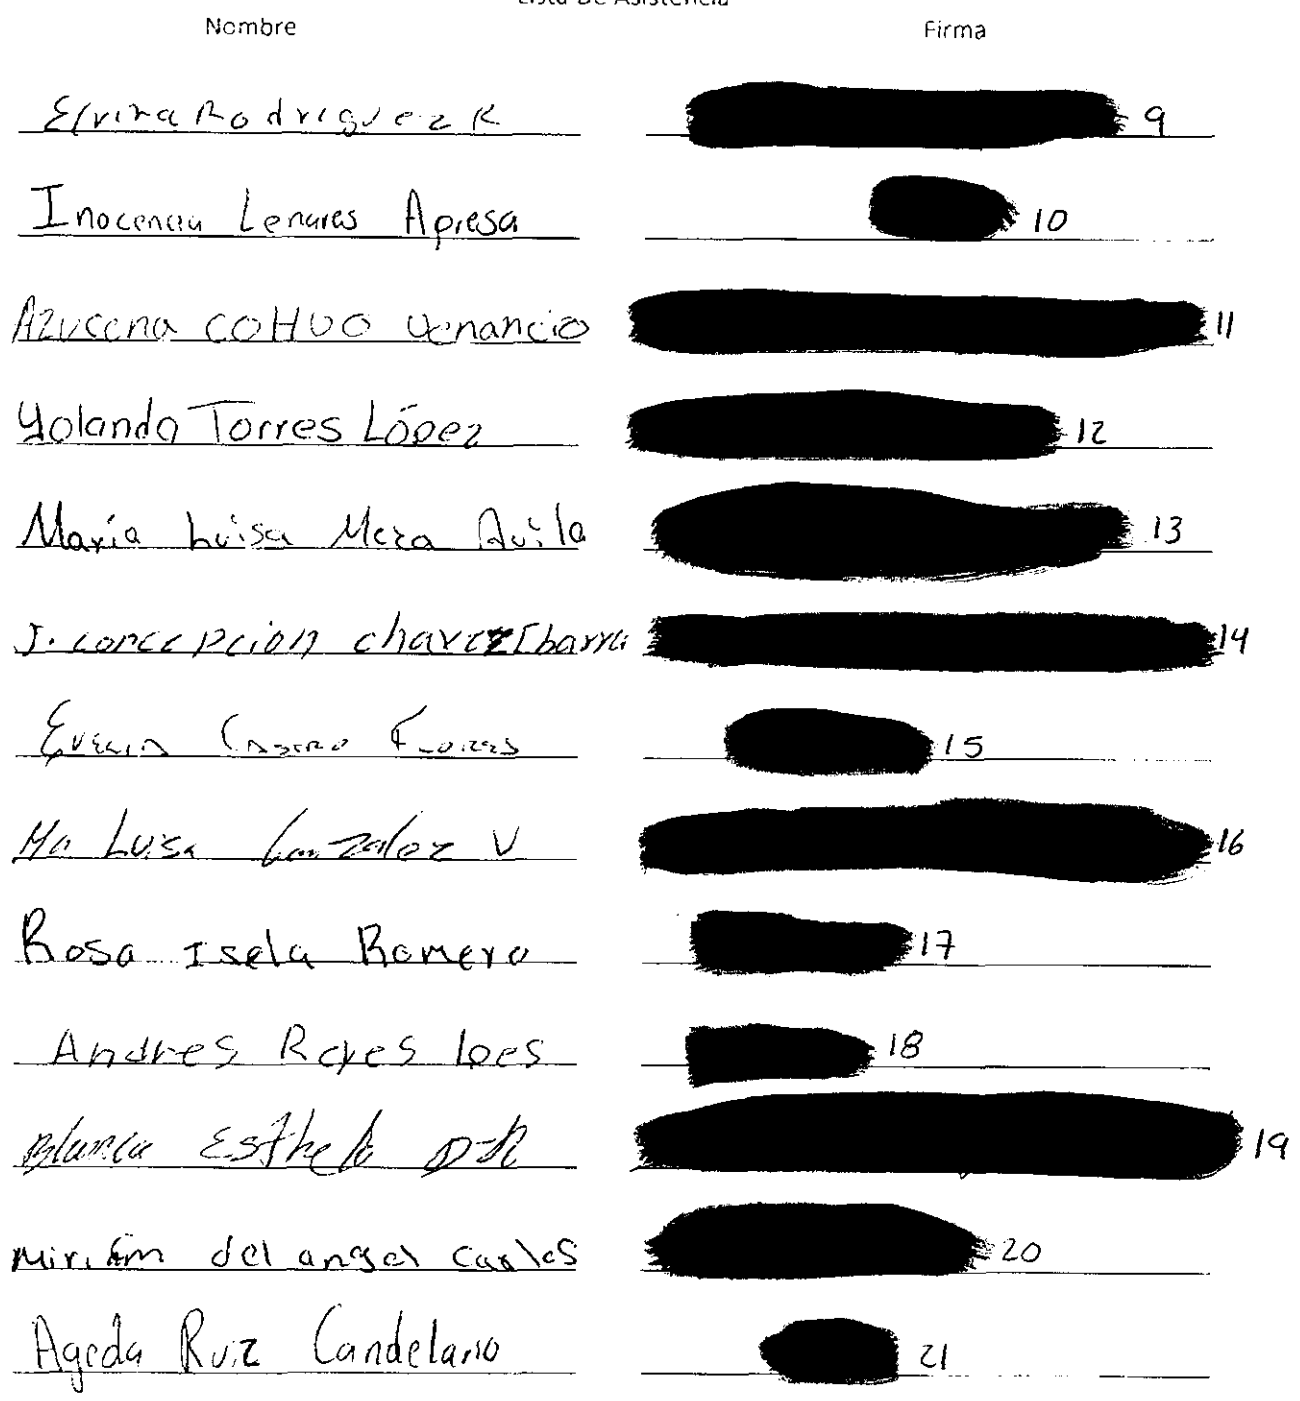 Lista De Asistencia
Nombre Firma
Elvira Rodriguez R 9
Inocencia Lenares Apresa 10
Azucena COHUO Venancio 11
Yolanda Torres López 12
María Luisa Meza Avila 13
J. concepcion chavez Ibarra 14
Evelin Castro Flores 15
Ma Luisa Gonzalez V 16
Rosa Isela Romero 17
Andres Reyes loes 18
Blanca Esthela D-R 19
Miriam del angel Carlos 20
Ageda Ruiz Candelario 21